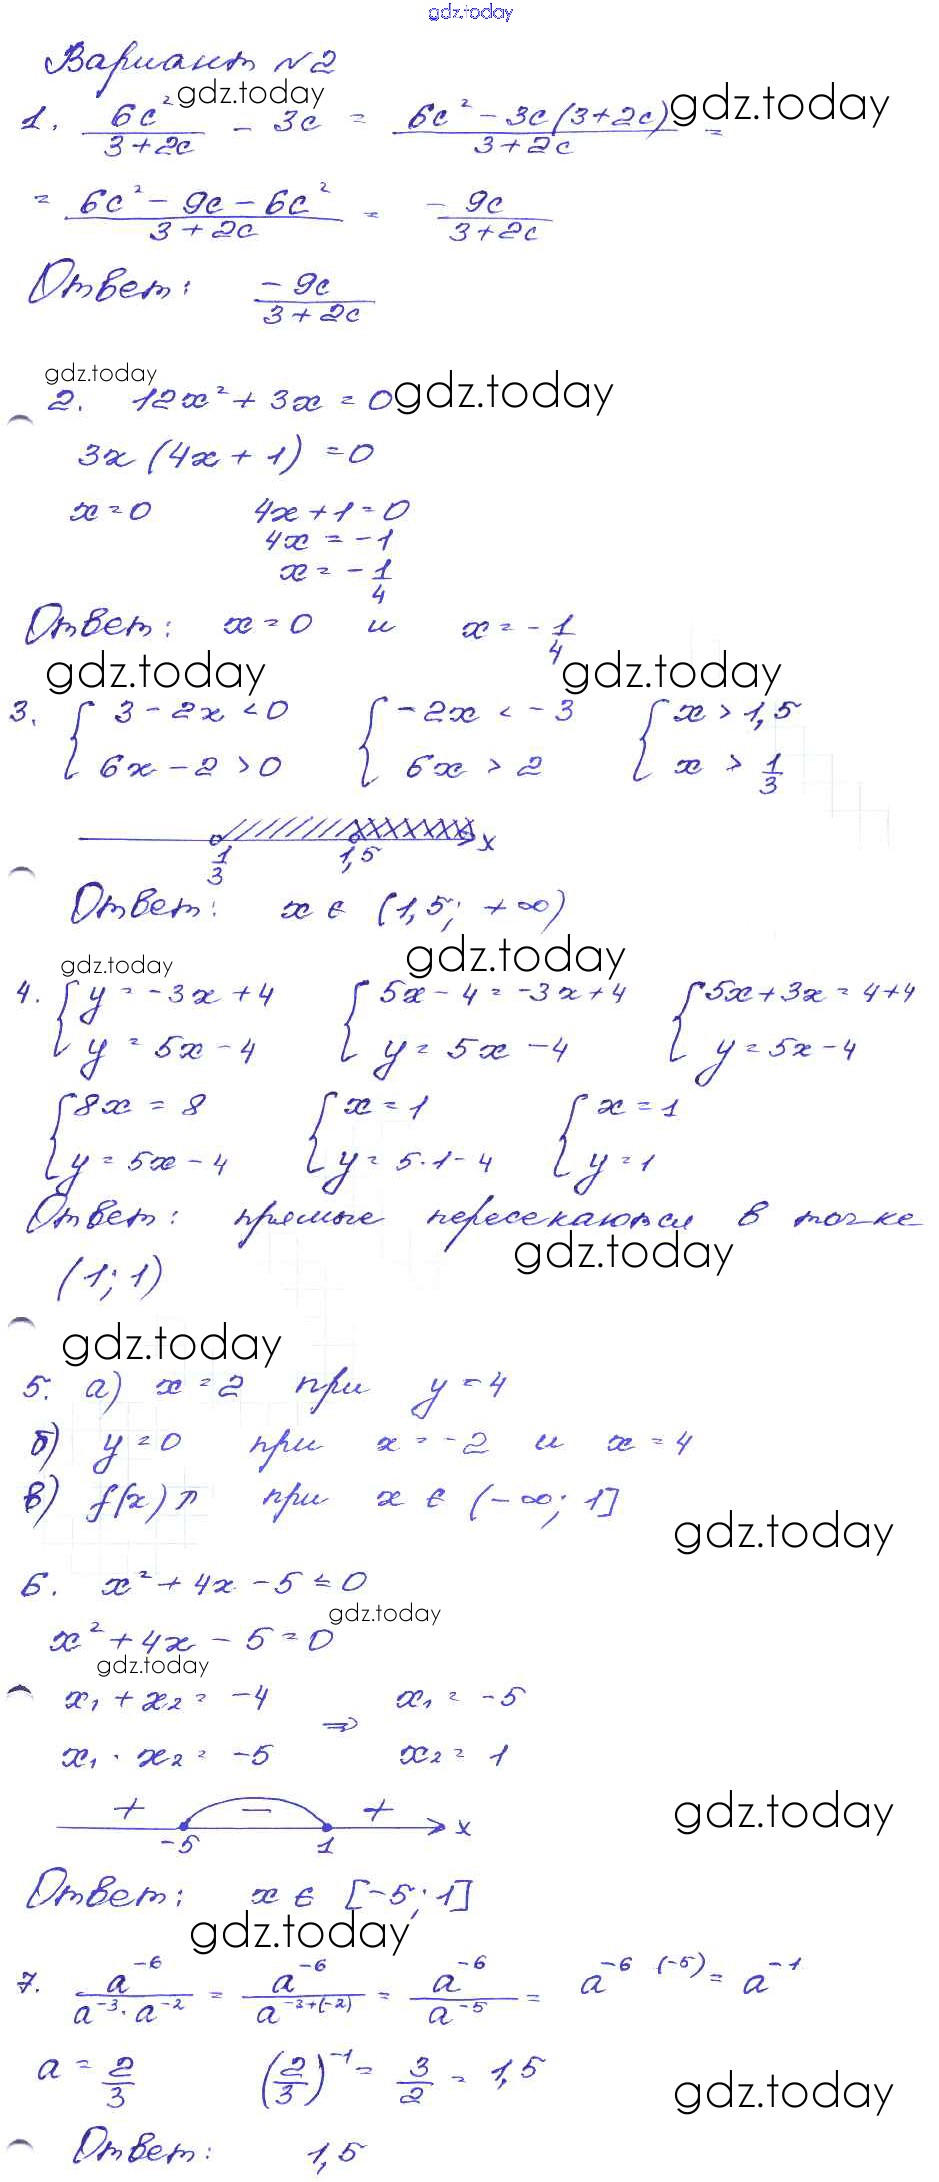 gdz.today
Вариант №2
gdz.today gdz.today
1. 6c²/(3+2c) - 3c = (6c² - 3c(3+2c))/(3+2c) =
= (6c² - 9c - 6c²)/(3+2c) = -9c/(3+2c)
Ответ: -9c/(3+2c)
gdz.today gdz.today
2. 12x² + 3x = 0
3x(4x + 1) = 0
x = 0 4x + 1 = 0
4x = -1
x = -1/4
Ответ: x = 0 и x = -1/4
gdz.today gdz.today
3. { 3 - 2x < 0 { -2x < -3 { x > 1,5
{ 6x - 2 > 0 { 6x > 2 { x > 1/3
1/3 1,5 x
Ответ: x ∈ (1,5; +∞)
gdz.today gdz.today
4. { y = -3x + 4 { 5x - 4 = -3x + 4 { 5x + 3x = 4 + 4
{ y = 5x - 4 { y = 5x - 4 { y = 5x - 4
{ 8x = 8 { x = 1 { x = 1
{ y = 5x - 4 { y = 5·1 - 4 { y = 1
Ответ: прямые пересекаются в точке
gdz.today
(1; 1)
gdz.today
5. а) x = 2 при y = 4
б) y = 0 при x = -2 и x = 4
в) f(x)↗ при x ∈ (-∞; 1]
gdz.today
6. x² + 4x - 5 ≤ 0
gdz.today
x² + 4x - 5 = 0
gdz.today
x₁ + x₂ = -4 ⇒ x₁ = -5
x₁ · x₂ = -5 x₂ = 1
gdz.today
+ - +
-5 1 x
Ответ: x ∈ [-5; 1]
gdz.today
7. a⁻⁶/(a⁻³·a⁻²) = a⁻⁶/a⁻³⁺⁽⁻²⁾ = a⁻⁶/a⁻⁵ = a⁻⁶⁻⁽⁻⁵⁾ = a⁻¹
a = 2/3 (2/3)⁻¹ = 3/2 = 1,5
gdz.today
Ответ: 1,5